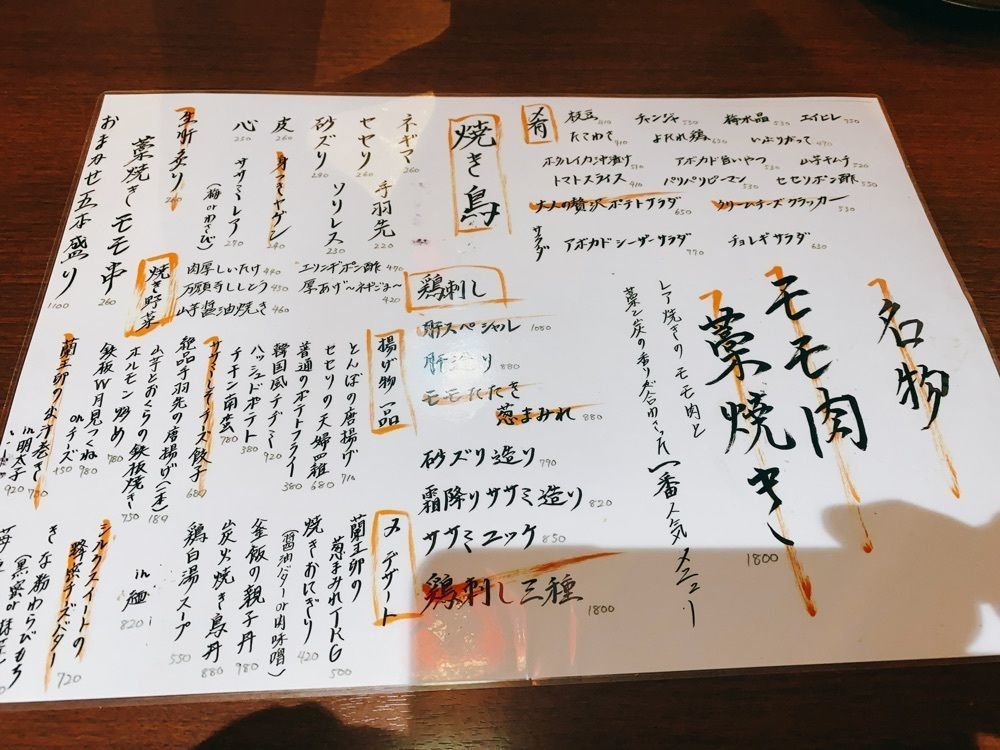 名物
モモ肉
藁焼き
1800
レア焼きのモモ肉と
藁と炭の香りが合わさった一番人気メニュー
肴
枝豆 410 チャンジャ 530 梅水晶 530 エイヒレ 750
たこわさ 410 よだれ鶏 630 いぶりがっこ 470
ホタルイカ沖漬け 510 アボカド旨いやつ 530 山芋キムチ 520
トマトスライス 410 パリパリピーマン 530 セセリポン酢 550
大人の贅沢ポテトサラダ 650 クリームチーズクラッカー 530
サラダ
アボカドシーザーサラダ 770 チョレギサラダ 630
焼き鳥
ネギマ 260 手羽先 220
セセリ 260 ソリレス 230
砂ズリ 290
皮 260 身つきヤゲン 240
心 250 ササミレア 270
(梅orわさび)
生肝炙り 260
藁焼きモモ串 260
おまかせ五本盛り 1100
焼き野菜
肉厚しいたけ 440 エリンギポン酢 470
万願寺ししとう 450 厚あげ〜ネギじま〜 420
山芋醤油焼き 460
鶏刺し
肝スペシャル 1050
肝造り 880
モモたたき
葱まみれ 880
砂ズリ造り 790
霜降りササミ造り 820
ササミユッケ 850
鶏刺し三種 1800
揚げ物一品
とんぱの唐揚げ 710
セセリの天婦羅 680
普通のポテトフライ 380
韓国風チヂミ 920
ハッシュドポテト 380
チキン南蛮 780
ササミチーズ餃子 680
絶品手羽先の唐揚げ(一本) 189
山芋とおくらの鉄板焼き 750
ホルモン炒め 780
鉄板W月見つくね 980
onチーズ 450
蘭王卵の出汁巻き 700
in明太子 920
〆 デザート
蘭王卵の
葱まみれTKG 500
焼きおにぎり 420
(醤油バターor肉味噌)
釜飯の親子丹 980
炭火焼き鳥丹 880
鶏白湯スープ 550
in麺 820
シルクスイートの
蜂蜜チーズバター 720
きな粉わらびもち